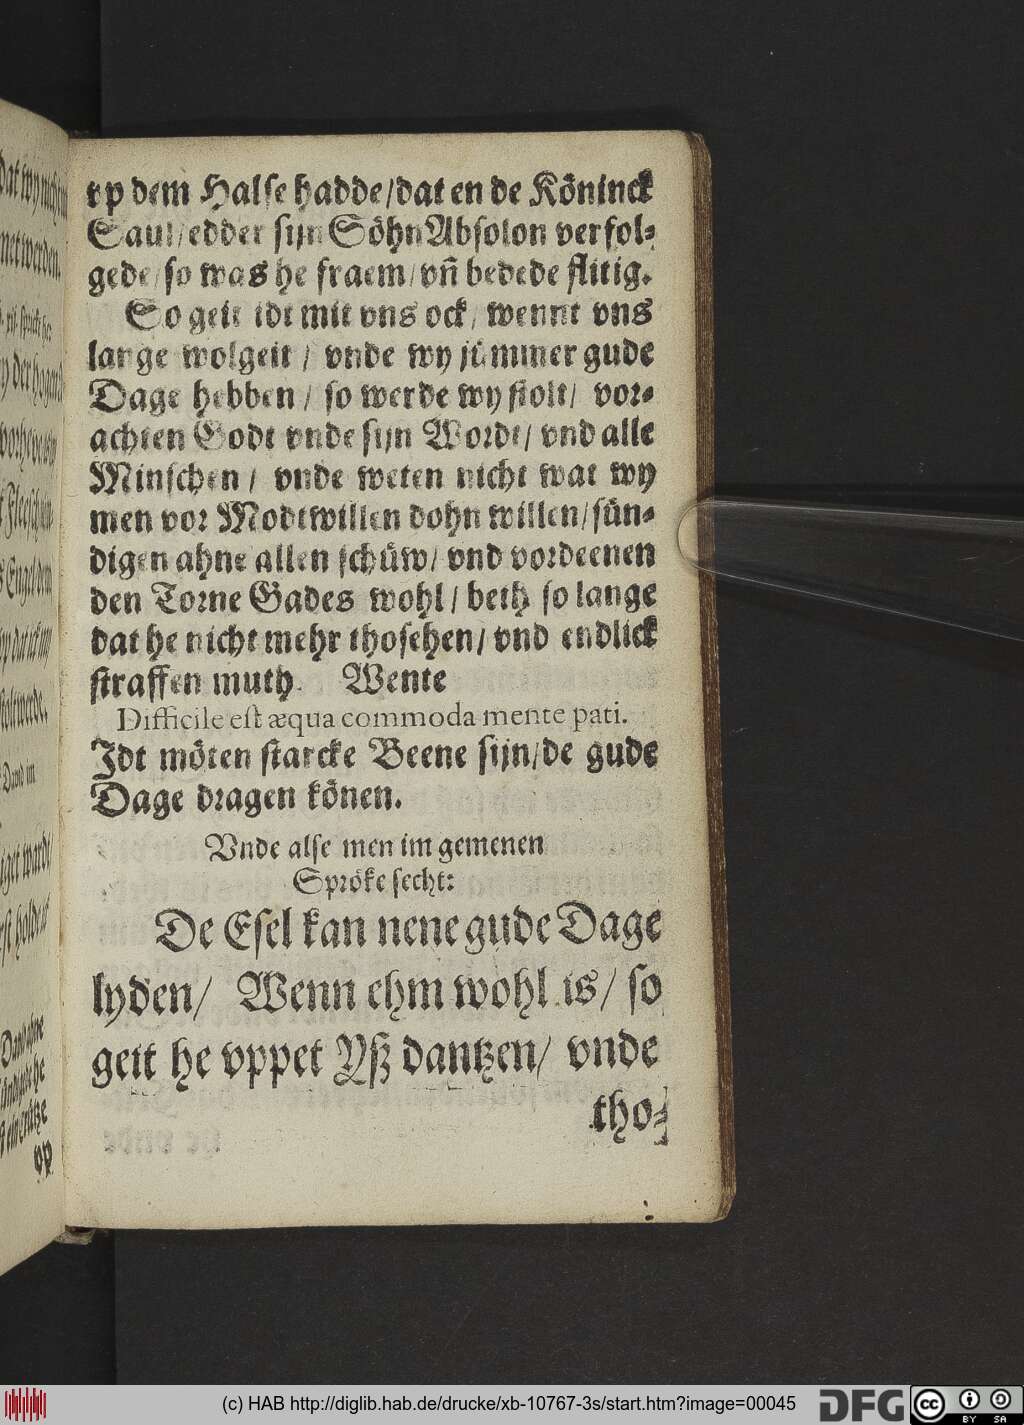 vp dem Halse hadde/dat en de Köninck
Saul/edder sijn Söhn Absolon verfol-
gede/so was he fraem/vñ bedede flitig.
So geit idt mit vns ock/ wennt vns
lange wolgeit / vnde wy jümmer gude
Dage hebben / so werde wy stolt/ vor-
achten Godt vnde sijn Wordt/ vnd alle
Minschen / vnde weten nicht wat wy
men vor Modtwillen dohn willen/sün-
digen ahne allen schüw/ vnd vordeenen
den Torne Gades wohl / beth so lange
dat he nicht mehr thosehen/ vnd endlick
straffen muth. Wente
Difficile est æqua commoda mente pati.
Idt möten starcke Beene sijn/de gude
Dage dragen könen.
Vnde alse men im gemenen
Spröke secht:
De Esel kan nene gude Dage
lyden/ Wenn ehm wohl is/ so
geit he vppet Yß dantzen/ vnde
tho-
(c) HAB http://diglib.hab.de/drucke/xb-10767-3s/start.htm?image=00045
DFG
cc
BY SA